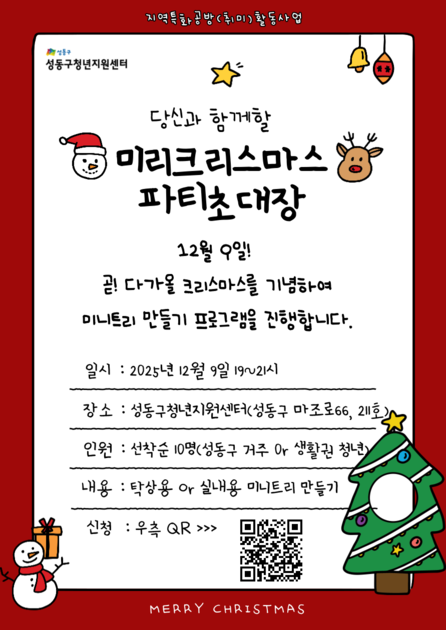 지역특화공방(취미)활동사업
성동구
성동구청년지원센터
당신과 함께할
미리크리스마스
파티초대장
12월 9일!
곧! 다가올 크리스마스를 기념하여
미니트리 만들기 프로그램을 진행합니다.
일시 : 2025년 12월 9일 19~21시
장소 : 성동구청년지원센터(성동구 마조로66, 211호)
인원 : 선착순 10명(성동구 거주 Or 생활권 청년)
내용 : 탁상용 Or 실내용 미니트리 만들기
신청 : 우측 QR >>>
MERRY CHRISTMAS